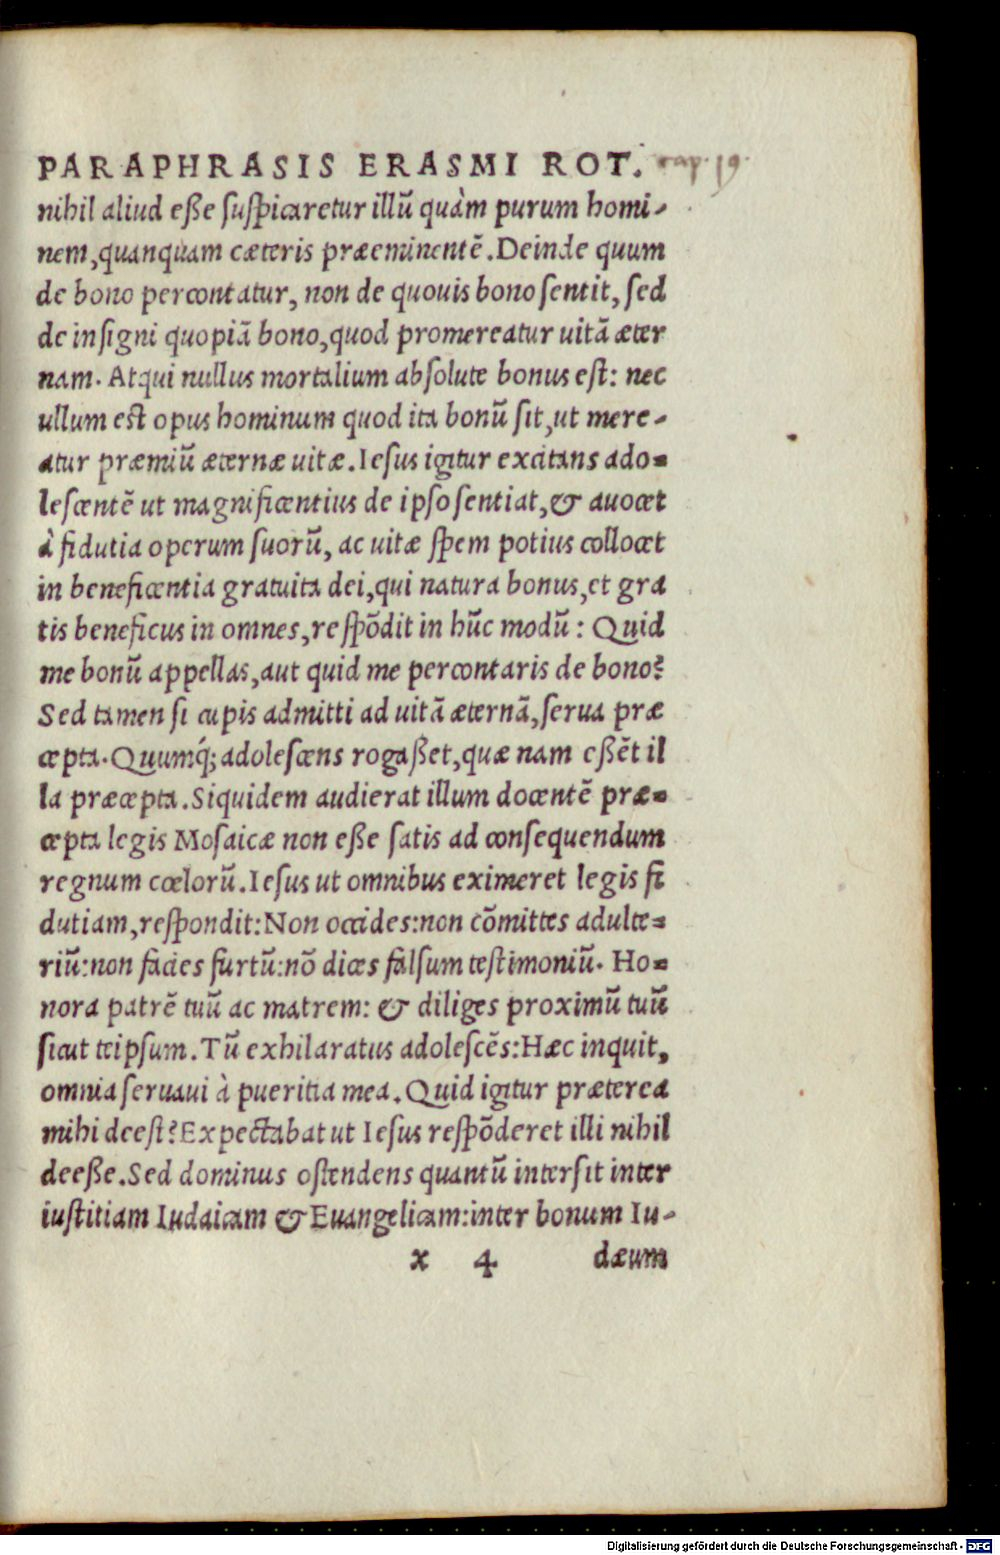 PARAPHRASIS ERASMI ROT. cap. 19.
nihil aliud eße ſuſpicaretur illũ quàm purum homi-
nem, quanquam cæteris præeminentẽ. Deinde quum
de bono percontatur, non de quouis bono ſentit, ſed
de inſigni quopiã bono, quod promereatur uitã æter
nam. Atqui nullus mortalium abſolute bonus eſt: nec
ullum eſt opus hominum quod ita bonũ ſit, ut mere-
atur præmiũ æternæ uitæ. Ieſus igitur excitans ado=
leſcentẽ ut magnificentius de ipſo ſentiat, & auocet
à fidutia operum ſuorũ, ac uitæ ſpem potius collocet
in beneficentia gratuita dei, qui natura bonus, et gra
tis beneficus in omnes, reſpõdit in hũc modũ: Quid
me bonũ appellas, aut quid me percontaris de bono?
Sed tamen ſi cupis admitti ad uitã æternã, ſerua præ
cepta. Quumq́; adoleſcens rogaßet, quæ nam eßẽt il
la præcepta. Siquidem audierat illum docentẽ præ=
cepta legis Moſaicæ non eße ſatis ad conſequendum
regnum cœlorũ. Ieſus ut omnibus eximeret legis fi
dutiam, reſpondit: Non occides: non cõmittes adulte=
riũ: non facies furtũ: nõ dices falſum teſtimoniũ. Ho=
nora patrẽ tuũ ac matrem: & diliges proximũ tuũ
ſicut teipſum. Tũ exhilaratus adoleſcẽs: Hæc inquit,
omnia ſeruaui à pueritia mea. Quid igitur præterea
mihi deeſt? Expectabat ut Ieſus reſpõderet illi nihil
deeße. Sed dominus oſtendens quantũ interſit inter
iuſtitiam Iudaicam & Euangelicam: inter bonum Iu-
x 4 dæum
Digitalisierung gefördert durch die Deutsche Forschungsgemeinschaft - DFG